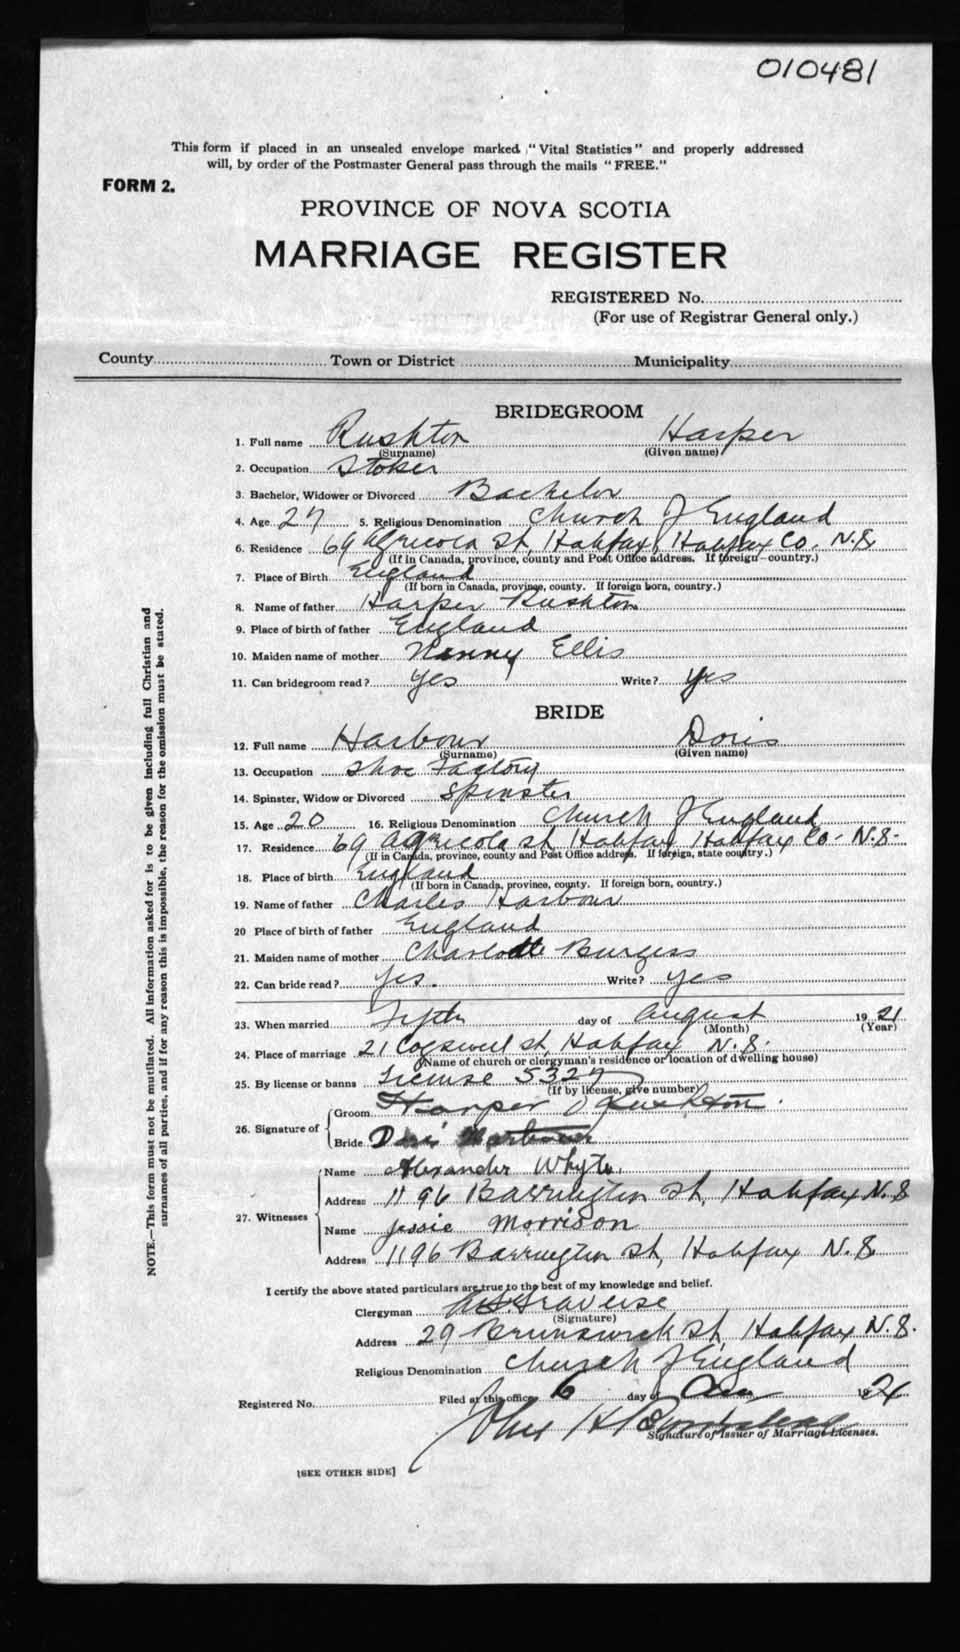 010481
This form if placed in an unsealed envelope marked "Vital Statistics" and properly addressed
will, by order of the Postmaster General pass through the mails "FREE."
FORM 2.
PROVINCE OF NOVA SCOTIA
MARRIAGE REGISTER
REGISTERED No.
(For use of Registrar General only.)
County Town or District Municipality
BRIDEGROOM
1. Full name Rushton Harper
(Surname) (Given name)
2. Occupation Stoker
3. Bachelor, Widower or Divorced Bachelor
4. Age 27 5. Religious Denomination Church of England
6. Residence 69 Agricola St, Halifax, Halifax Co. N.S
(If in Canada, province, county and Post Office address. If foreign—country.)
7. Place of Birth England
(If born in Canada, province, county. If foreign born, country.)
8. Name of father Harper Rushton
9. Place of birth of father England
10. Maiden name of mother Nanny Ellis
11. Can bridegroom read? Yes Write? Yes
BRIDE
12. Full name Harbour Doris
(Surname) (Given name)
13. Occupation Shoe Factory
14. Spinster, Widow or Divorced Spinster
15. Age 20 16. Religious Denomination Church of England
17. Residence 69 Agricola St Halifax Halifax Co- N.S-
(If in Canada, province, county and Post Office address. If foreign, state country.)
18. Place of birth England
(If born in Canada, province, county. If foreign born, country.)
19. Name of father Charles Harbour
20 Place of birth of father England
21. Maiden name of mother Charlotte Burgess
22. Can bride read? Yes. Write? Yes
23. When married Fifth day of August 1921
(Month) (Year)
24. Place of marriage 21 Cogswell St, Halifax N.S.
(Name of church or clergyman's residence or location of dwelling house)
25. By license or banns License 5327
(If by license, give number)
26. Signature of
Groom Harper Rushton.
Bride Doris Harbour
27. Witnesses
Name Alexander Whyte.
Address 1196 Barrington St, Halifax N.S
Name Jessie Morrison
Address 1196 Barrington St, Halifax N.S
I certify the above stated particulars are true to the best of my knowledge and belief.
Clergyman Traverse
(Signature)
Address 29 Brunswick St, Halifax N.S.
Religious Denomination Church of England
Registered No. Filed at this office 6 day of 192
John H
Signature of Issuer of Marriage Licenses.
[SEE OTHER SIDE]
NOTE.—This form must not be mutilated. All information asked for is to be given including full Christian and
surnames of all parties, and if for any reason this is impossible, the reason for the omission must be stated.